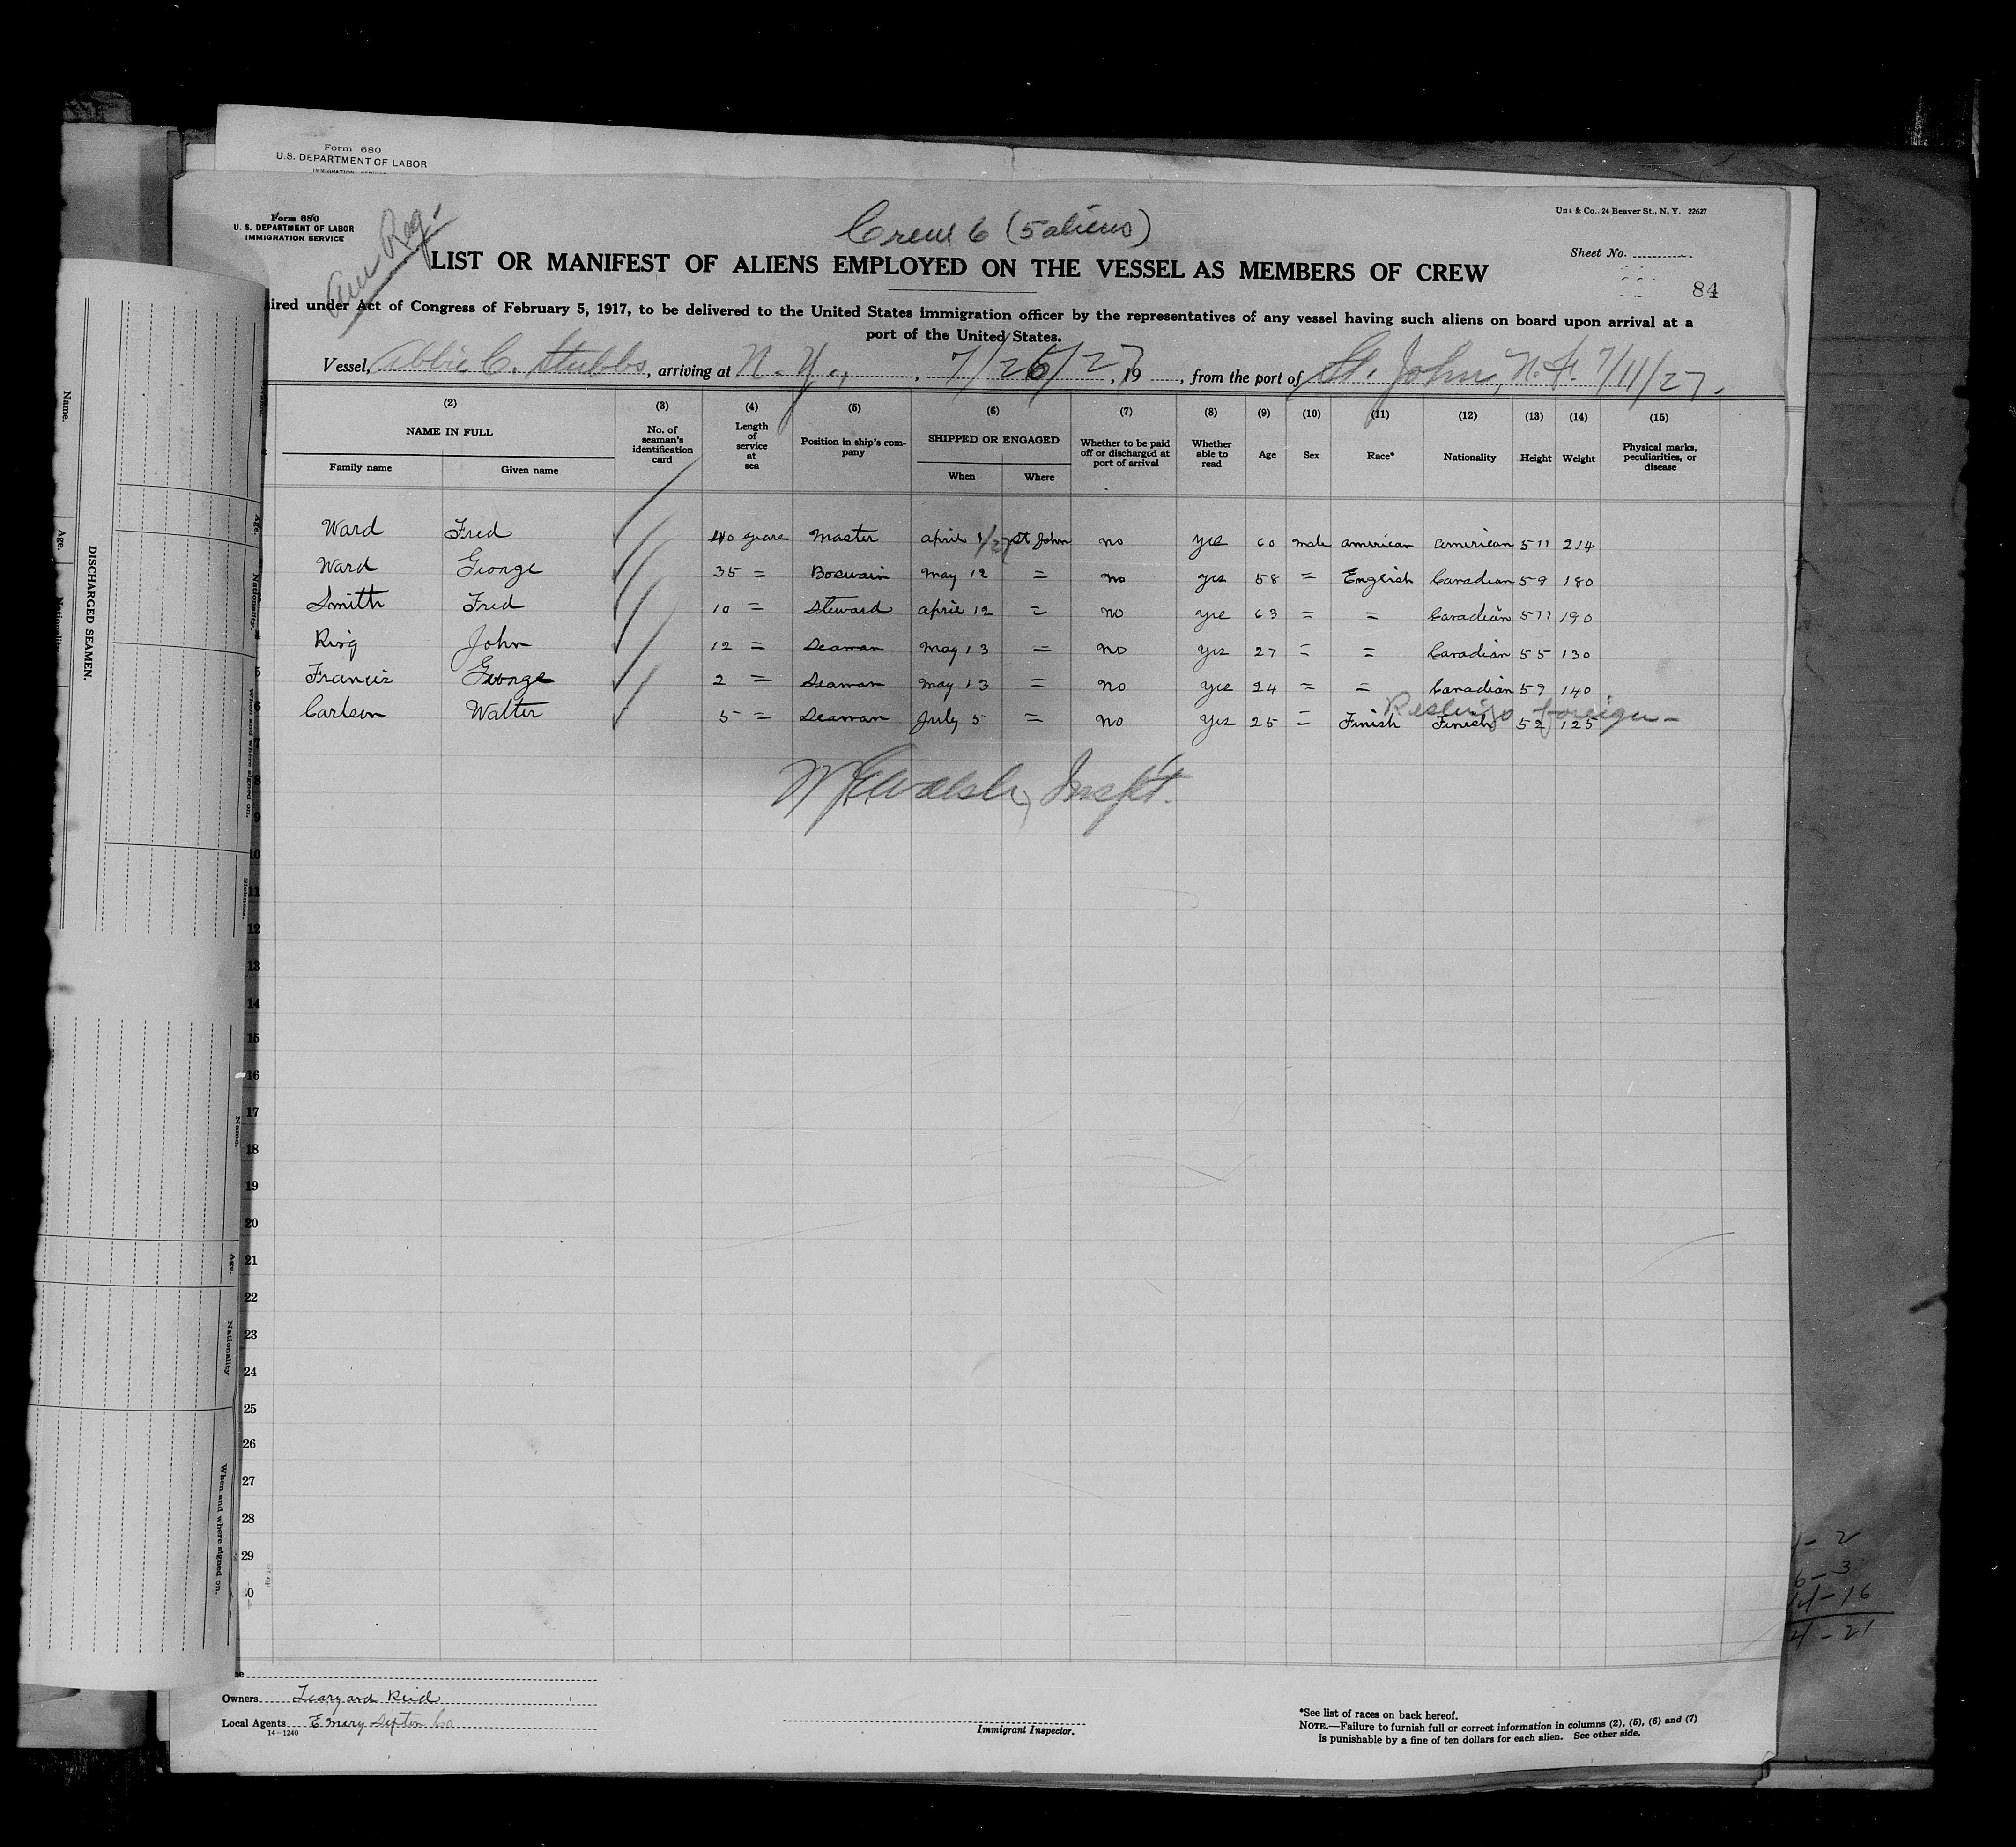 Form 680
U.S. DEPARTMENT OF LABOR
IMMIGRATION SERVICE
Form 680
U. S. DEPARTMENT OF LABOR
IMMIGRATION SERVICE
Reg.
Crew 6 (5 aliens)
& Co., 24 Beaver St., N. Y. 22627
Sheet No.
84
LIST OR MANIFEST OF ALIENS EMPLOYED ON THE VESSEL AS MEMBERS OF CREW
ired under Act of Congress of February 5, 1917, to be delivered to the United States immigration officer by the representatives of any vessel having such aliens on board upon arrival at a
port of the United States.
Vessel, Abbie C. Stubbs, arriving at N. Y., 7/26/27, 19 , from the port of St. John, N.F. 7/11/27.
(2) (3) (4) (5) (6) (7) (8) (9) (10) (11) (12) (13) (14) (15)
NAME IN FULL
Family name Given name
No. of seaman's identification card
Length of service at sea
Position in ship's company
SHIPPED OR ENGAGED
When Where
Whether to be paid off or discharged at port of arrival
Whether able to read
Age Sex Race* Nationality Height Weight
Physical marks, peculiarities, or disease
Ward Fred 40 years Master april 1/27 St John no yes 60 male american american 5 11 214
Ward George 35 = Boswain may 12 = no yes 58 = English Canadian 5 9 180
Smith Fred 10 = Steward april 12 = no yes 63 = = Canadian 5 11 190
John 12 = Seaman may 13 = no yes 27 = = Canadian 5 5 130
5 Francis George 2 = Seaman may 13 = no yes 24 = = Canadian 5 9 140
foreign
6 Carlson Walter 5 = Seaman July 5 = no yes 25 = Finish Finish 5 2 125
7
8
Walsh, Insp't.
9
10
11
12
13
14
15
16
17
18
19
20
21
22
23
24
25
26
27
28
29
30
Owners
Local Agents
14-1240
Immigrant Inspector.
*See list of races on back hereof.
NOTE.—Failure to furnish full or correct information in columns (2), (5), (6) and (7)
is punishable by a fine of ten dollars for each alien. See other side.
Name.
Age.
Nationality
DISCHARGED SEAMEN.
Age.
Nationality.
When and where signed on.
Sickness.
Name.
Age.
Nationality
When and where signed on.
- 2
6 - 3
14 - 16
- 21